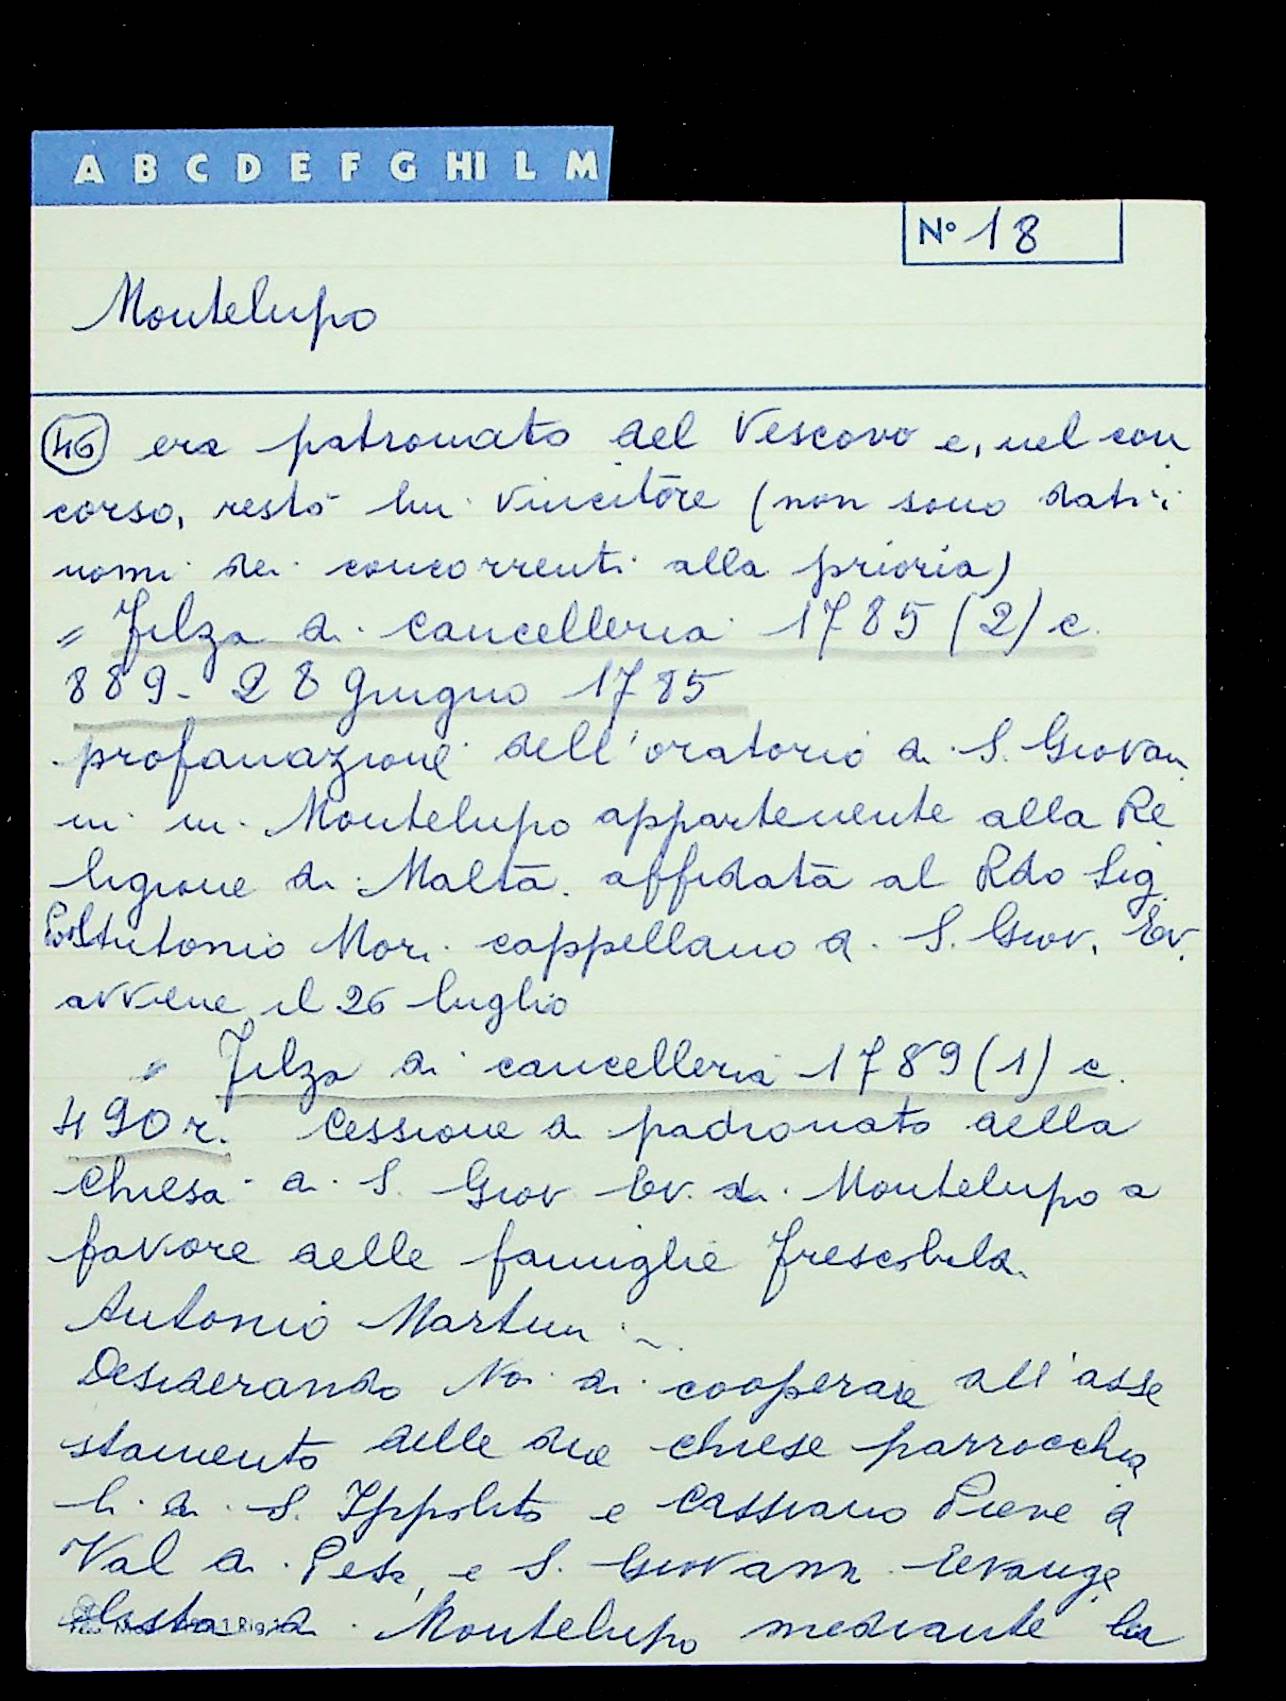 A B C D E F G HI L M
N° 18
Montelupo
46 era patronato del Vescovo e, nel con
corso, restò lui vincitore (non sono dati i
nomi dei concorrenti alla prioria)
= Filza di cancelleria 1785 (2) c.
889 - 28 Giugno 1785
profanazione dell'oratorio di S. Giovan
ni in Montelupo appartenente alla Re
ligione di Malta. affidata al Rdo Sig.
Antonio Mori cappellano di S. Giov. Ev.
avviene il 26 luglio
= Filza di cancelleria 1789 (1) c.
490 r. Cessione di padronato della
Chiesa di S. Giov Ev. di Montelupo a
favore delle famiglie Frescobaldi
Antonio Martini
Desiderando Noi di cooperare all'asse
stamento delle due chiese parrocchia
li di S. Ippolito e Cassiano Pieve a
Val di Pesa, e S. Giovanni Evange
lista di Montelupo mediante la